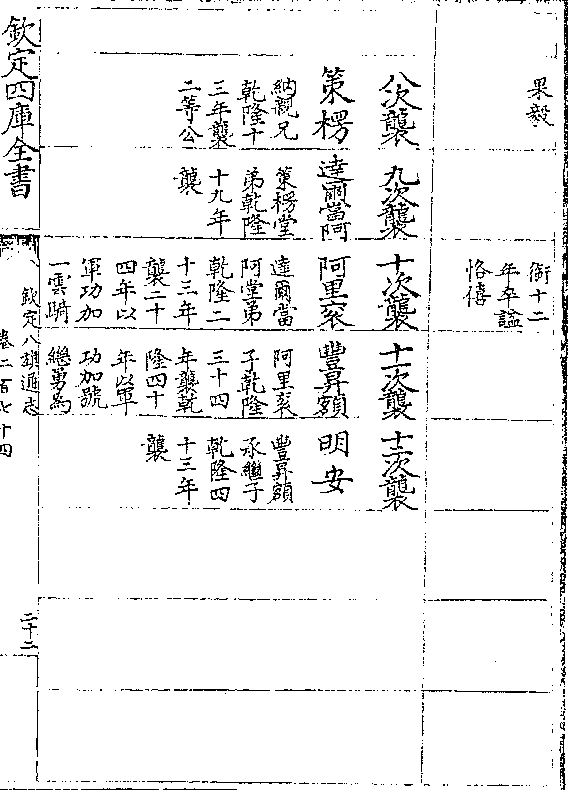 果毅
銜十二
年卒諡
恪僖
八次襲
策楞
納親兄
乾隆十
三年襲
二等公
九次襲
達爾當阿
策楞堂
弟乾隆
十九年
襲
十次襲
阿里衮
達爾當
阿堂弟
乾隆二
十三年
襲二十
四年以
軍功加
一雲騎
十一次襲
豐昇額
阿里衮
子乾隆
三十四
年襲乾
隆四十
年以軍
功加號
總勇為
十二次襲
明安
豐昇額
承繼子
乾隆四
十三年
襲
欽定四庫全書
欽定八旗通志
卷二百七十四
二十二